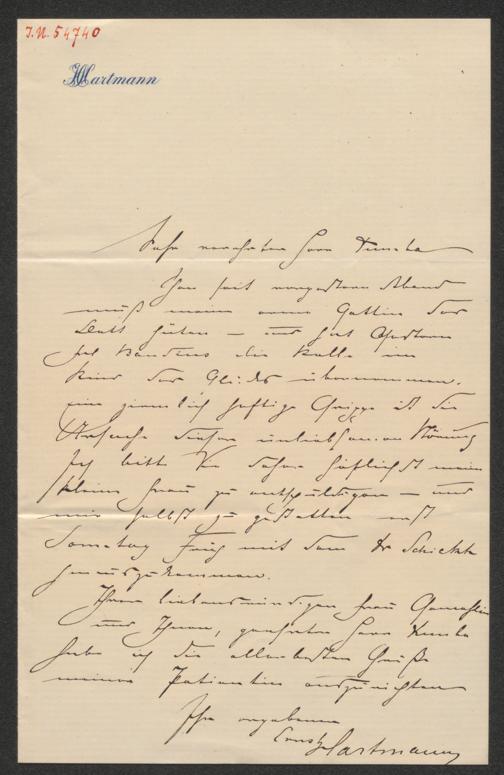 I.N. 54740
Hartmann
Sehr verehrter Herr
Schon seit vorgestern Abend
muß meine arme Gattin das
Bett hüten – und hat gestern
die Rolle im
Kind des übernommen.
eine ziemlich heftige Grippe ist die
Ursache dieser unliebsamen Störung
Ich bitte Sie daher höflichst meine
kleine Frau zu entschuldigen – und
mir selbst zu gestatten erst
Sonntag Früh mit dem Dr
hinauszukommen.
Ihrer liebenswürdigen Frau Gemahlin
und Ihnen, geehrter Herr
habe ich die allerbesten Grüße
meiner Patientin auszurichten
Ihr ergebener
Ernst Hartmann